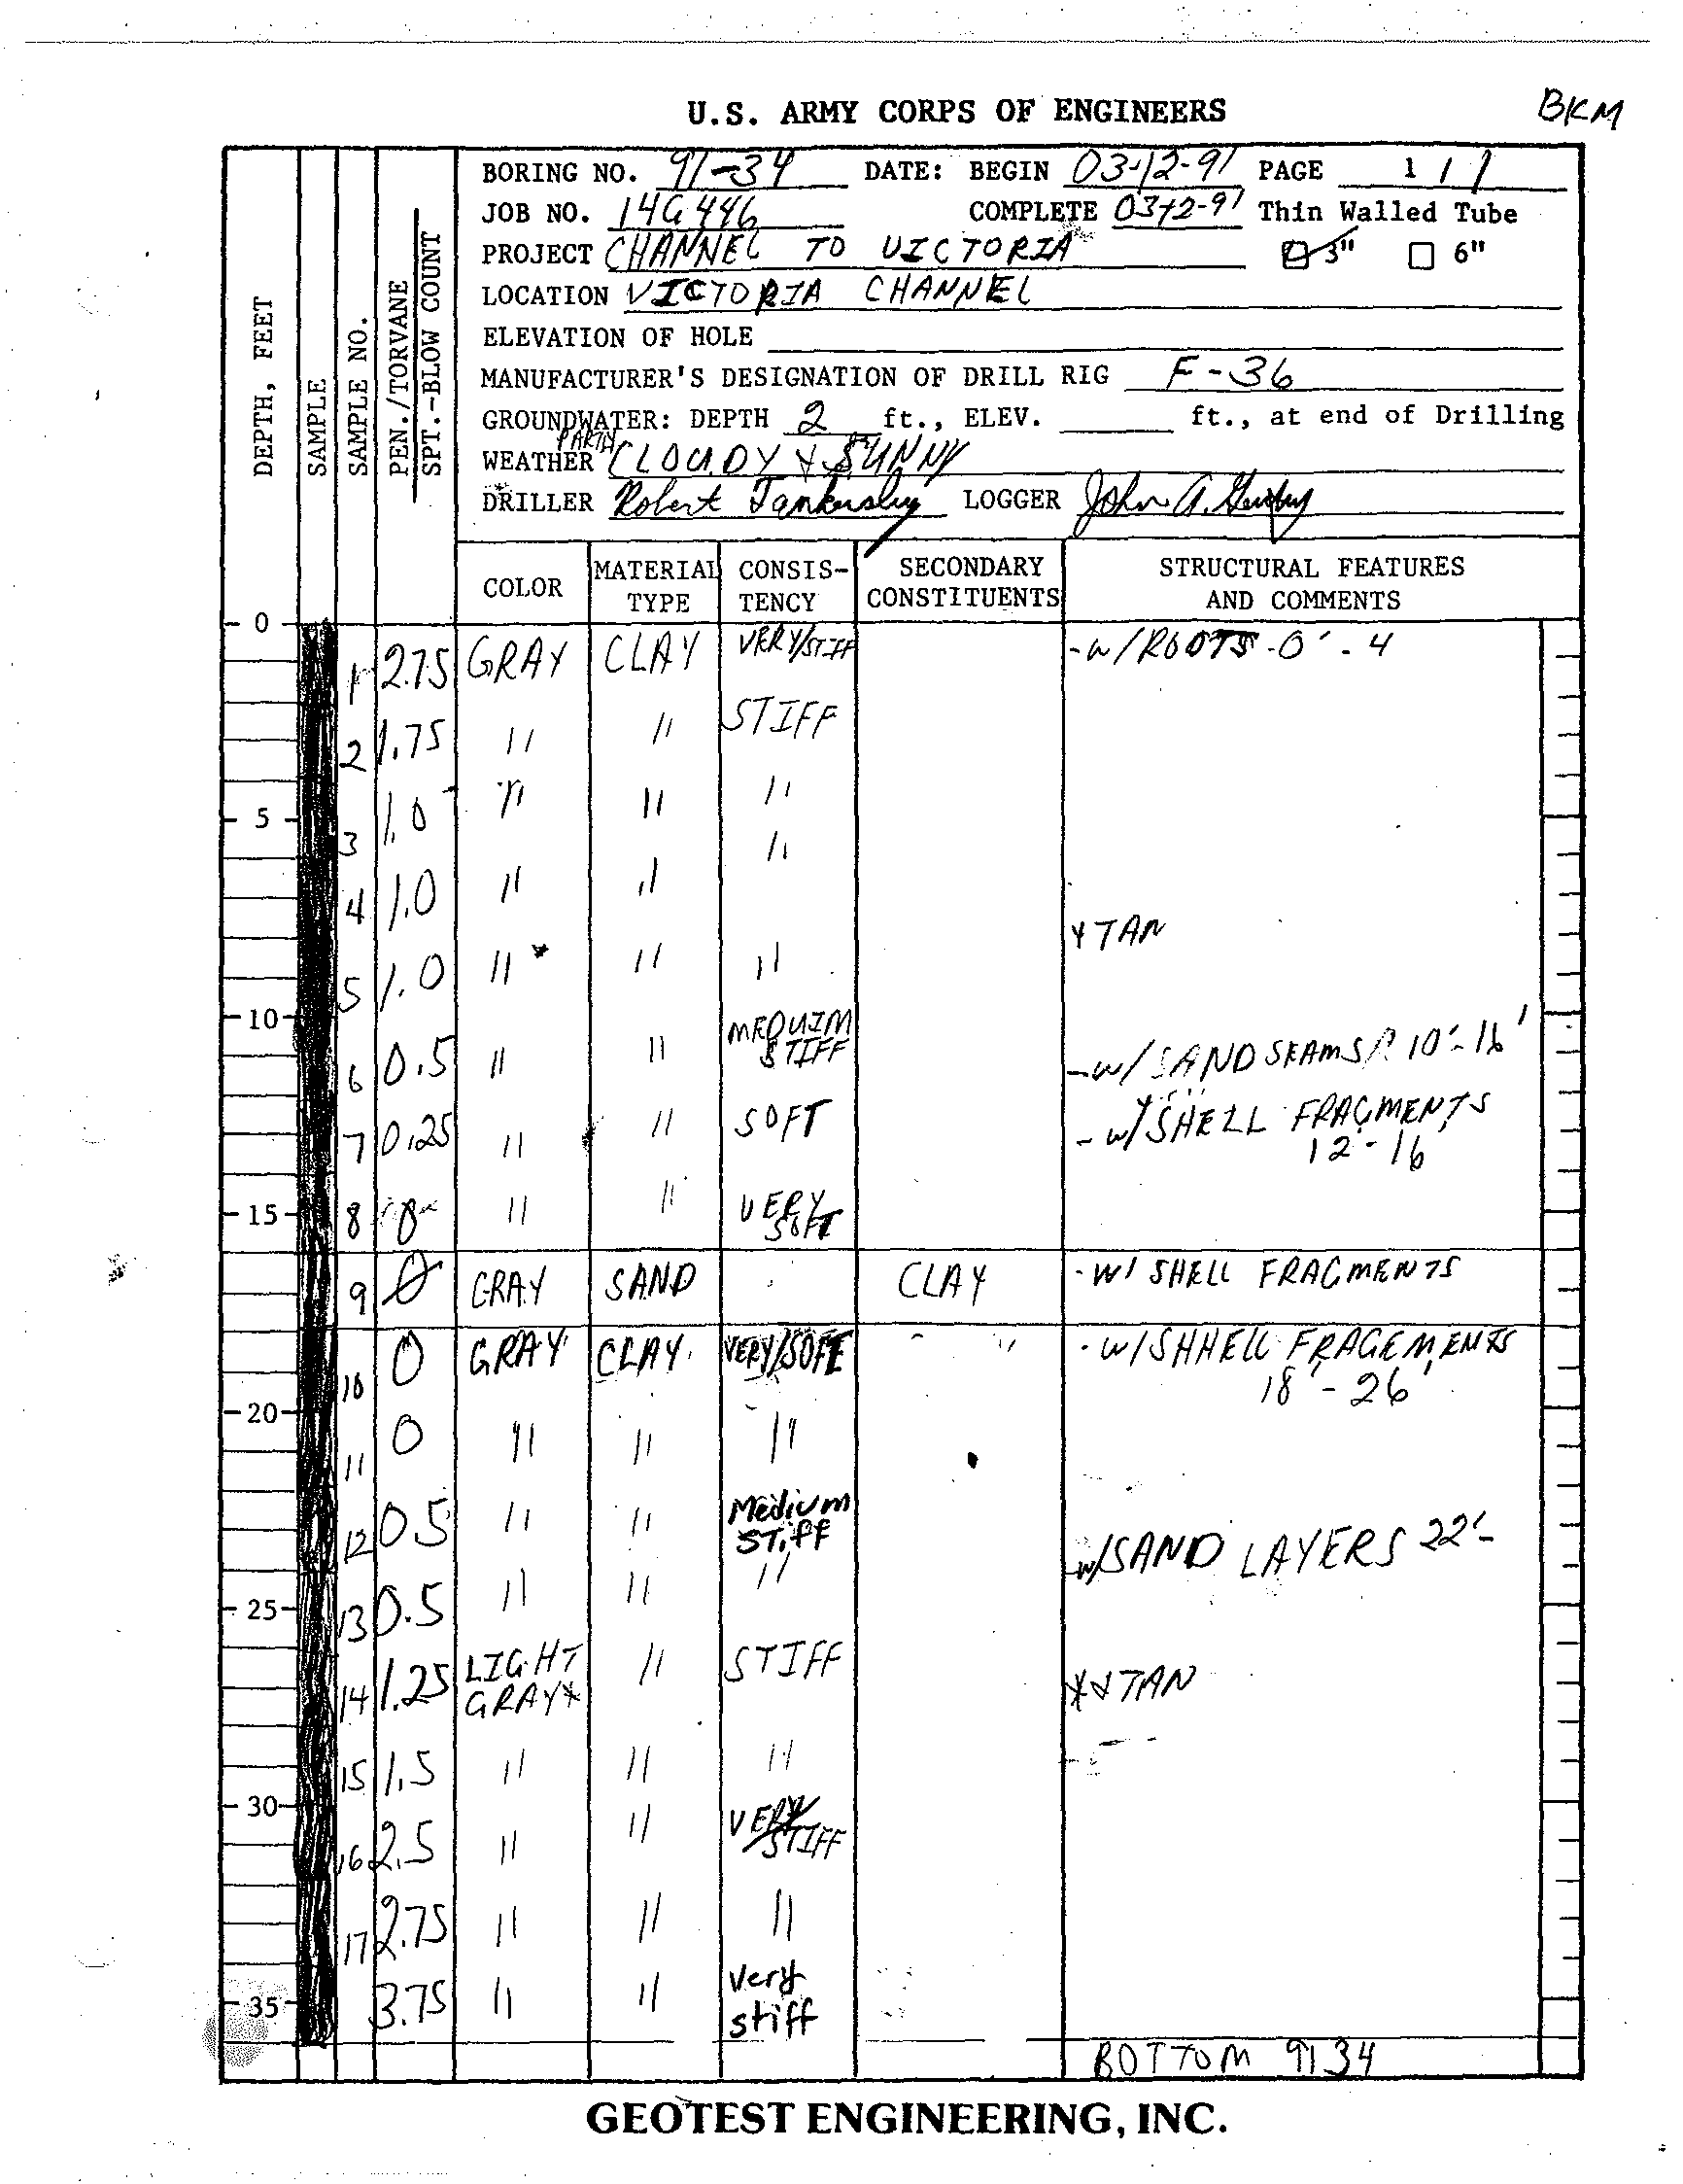 U.S. ARMY CORPS OF ENGINEERS
BKM
BORING NO. 91-34 DATE: BEGIN 03-12-91 PAGE 1 / 1
JOB NO. 14G446 COMPLETE 03-12-91 Thin Walled Tube
PROJECT CHANNEL TO VICTORIA 3" 6"
LOCATION VICTORIA CHANNEL
ELEVATION OF HOLE
MANUFACTURER'S DESIGNATION OF DRILL RIG F-36
GROUNDWATER: DEPTH 2 ft., ELEV. ft., at end of Drilling
WEATHER PARTLY CLOUDY & SUNNY
DRILLER Robert Tankersley LOGGER John A.
DEPTH, FEET
SAMPLE
SAMPLE NO.
PEN./TORVANE
SPT.-BLOW COUNT
COLOR MATERIAL TYPE CONSIS-TENCY SECONDARY CONSTITUENTS STRUCTURAL FEATURES AND COMMENTS
0
1 2.75 GRAY CLAY VERY/STIFF -w/ROOTS-0'-4
2 1.75 " " STIFF
5
3 1.0 " " "
"
4 1.0 " "
* TAN
5 1.0 " * " "
10
6 0.5 " " MEDUIM STIFF -w/SAND SEAMS 10'-16'
7 0.25 " " SOFT -w/SHELL FRAGMENTS
12-16
15
8 0 " " VERY SOFT
9 0 GRAY SAND CLAY -W/ SHELL FRAGMENTS
10 0 GRAY CLAY VERY/SOFT -W/SHHELL FRAGEMENTS
18'-26'
20
11 0 " " "
12 0.5 " " Medium STiff w/SAND LAYERS 22'-
25
13 0.5 " " "
14 1.25 LIGHT GRAY* " STIFF *& TAN
15 1.5 " " "
30
16 2.5 " " VERY STIFF
17 2.75 " " "
35
3.75 " " very stiff
BOTTOM 9134
GEOTEST ENGINEERING, INC.